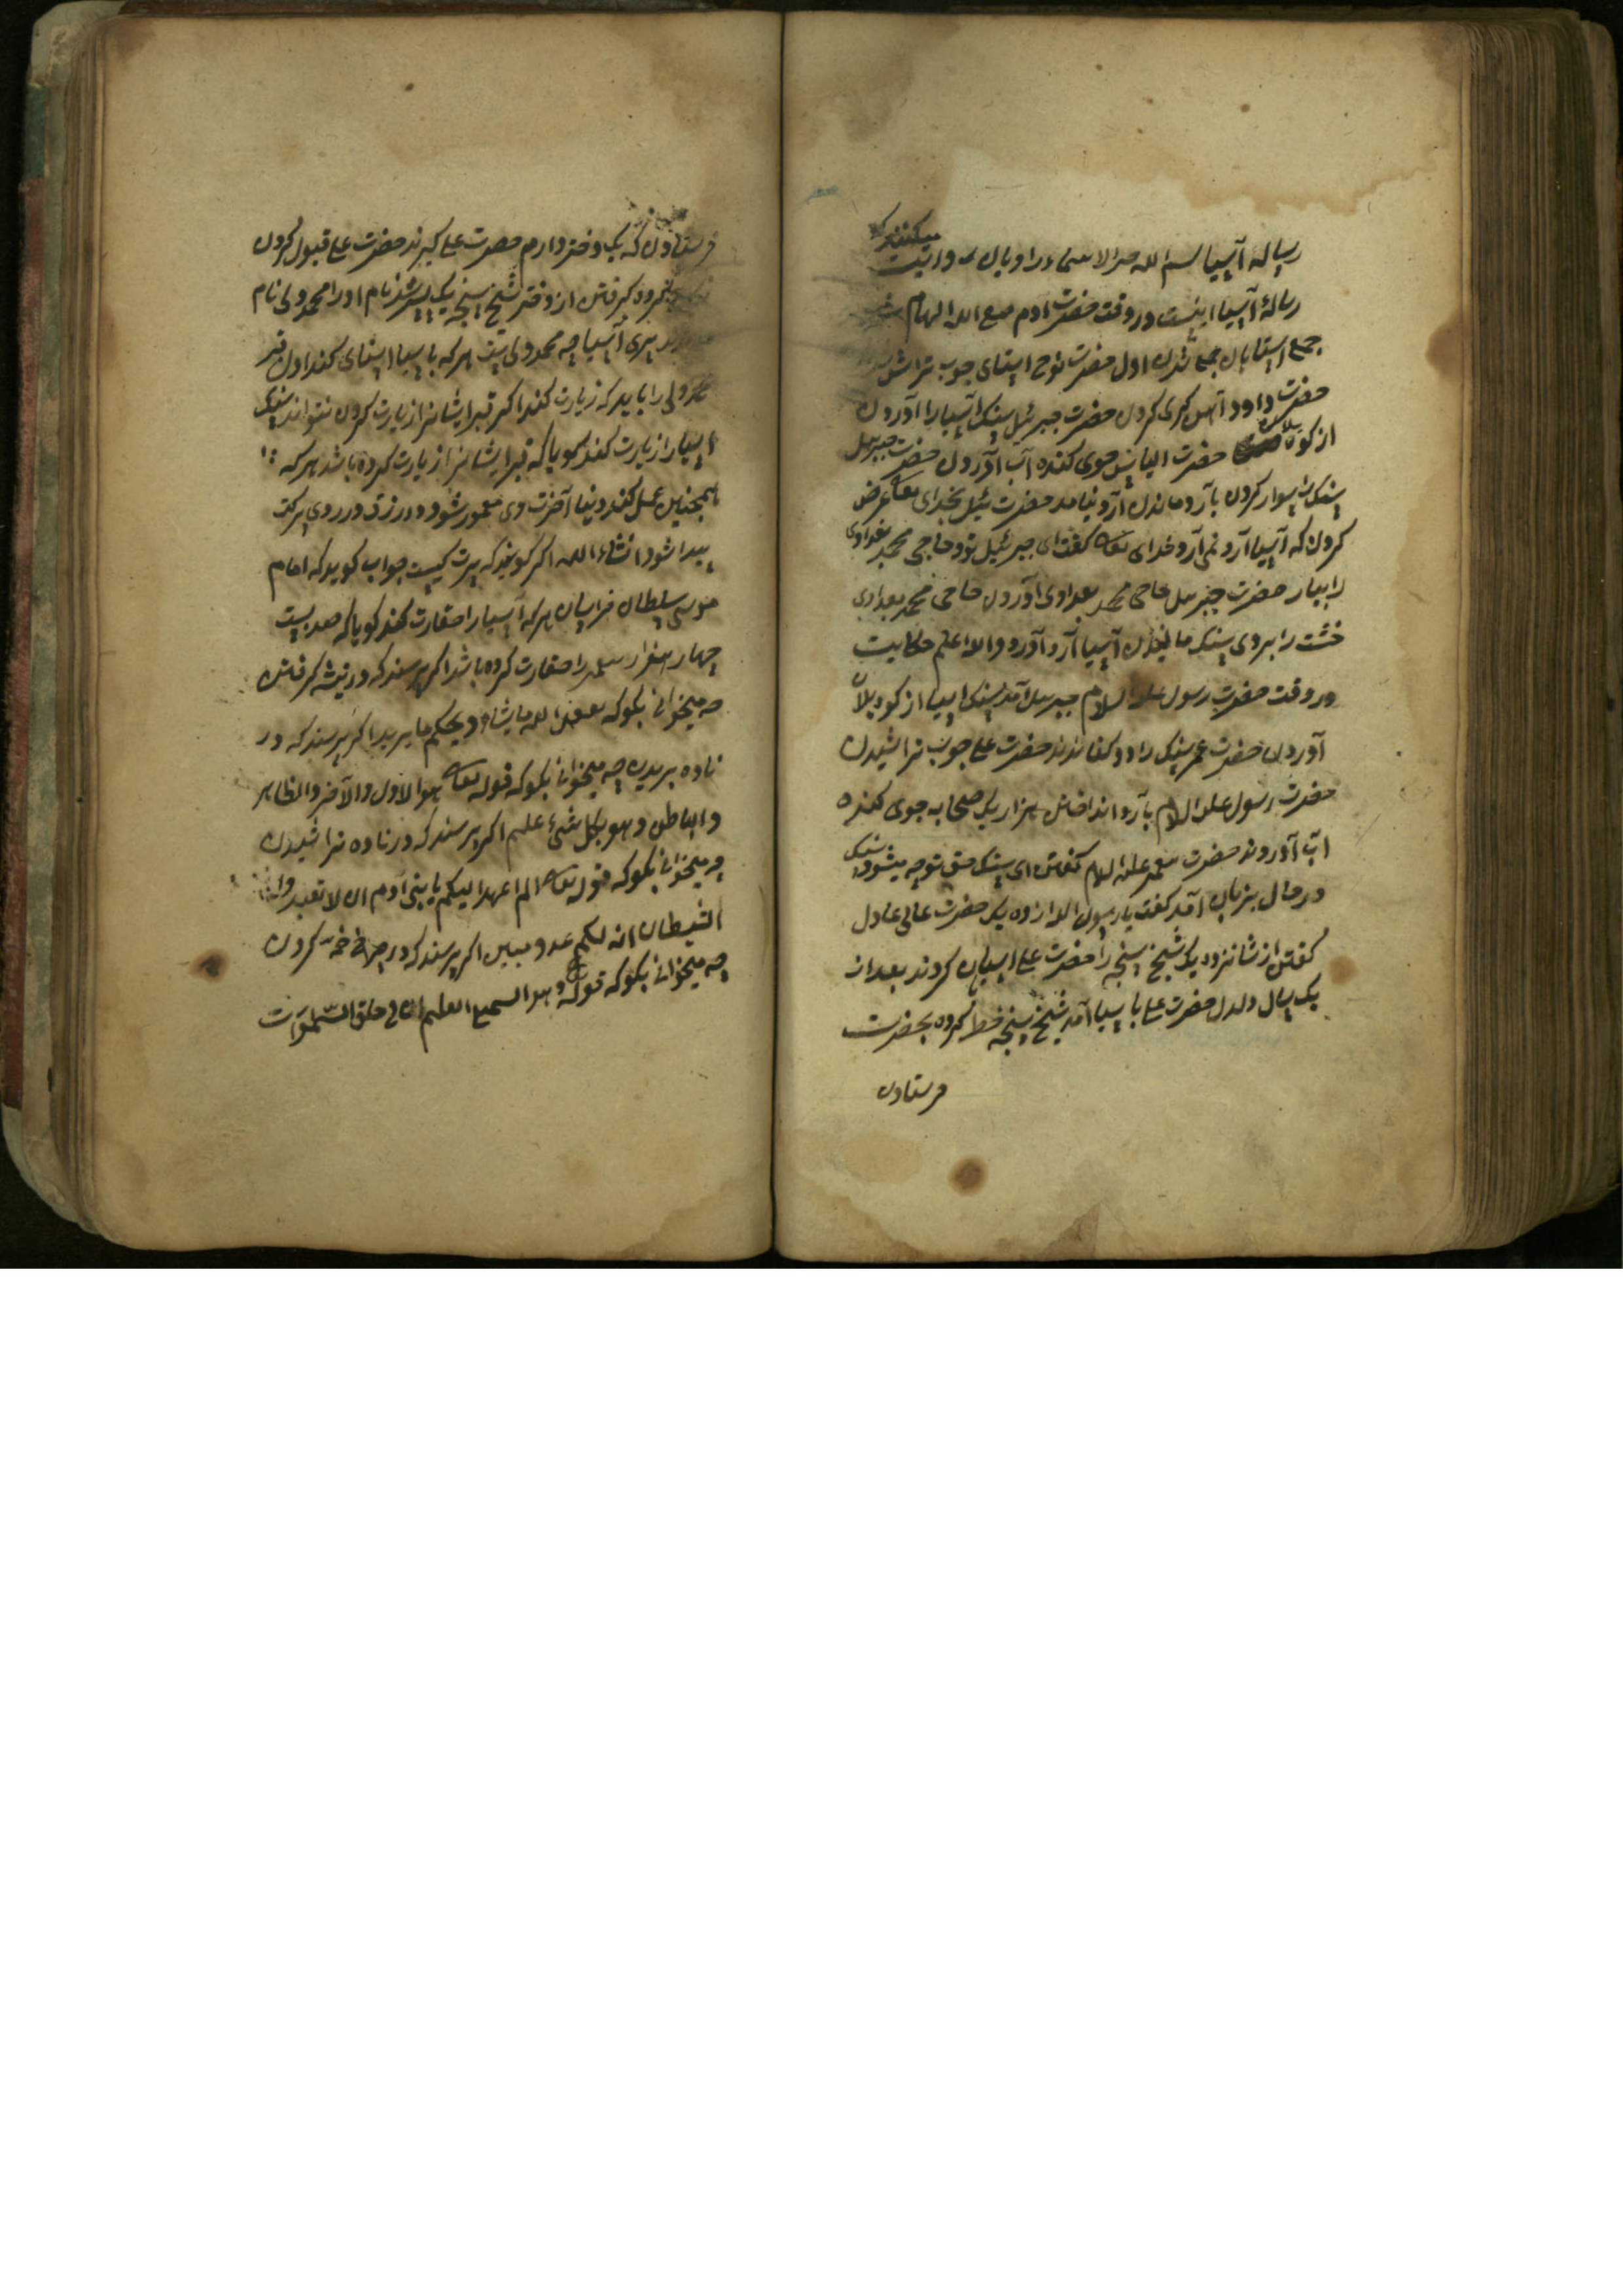 رساله آسیا بسم الله خیر الاسماء راویان روایت میکنند که
رسالهٔ آسیا اینست در وقت حضرت ادم صفی الله الهام
جمع استایان جمع شدن اول حضرت نوح استای چوب تراش
حضرت داود آهن کری کردن حضرت جبرئیل سنک آسیا را آوردن
از کوه حضرت الیاس جوی کنده آب آوردن حضرت جبرئیل
سنک را سوار کردن بآرد ماندن آرد نیامد حضرت ئیل بخدای تعا عرض
کردن که آسیا آرد نمی آرد خدای تعا کفت ای جبرئیل تو حاجی محمد بغدادی
را بیار حضرت جبرئیل حاجی محمد بغدادی آوردن حاجی محمد بغدادی
خشت را بروی سنک مالیدن آسیا آرد آورد والله اعلم حکایت
در وقت حضرت رسول علیه السلام جبرئیل آمد سنک اسیا از کوه
آوردن حضرت عمر سنک را دو کفاندند حضرت علی چوب تراشیدن
حضرت رسول علیه السلام بآرد انداختن هزار یک صحابه جوی کنده
اب آوردند حضرت پیغمبر علیه السلام کفتن ای سنک حق تو چه میشود سنک
در حال بزبان آمد کفت یا رسول الله از ده یک حضرت عالی عادل
کفتن از شانزده یک شیخ سنجه را حضرت علی اسیابان کردند بعد از
یک سال دلدل حضرت علی باسیا آمد شیخ سنجه خط کرده بحضرت
فرستادن
فرستادن که یک دختر دارم حضرت علی کیرند حضرت علی قبول کردن
کرفتن از دختر شیخ سنجه یک پسر شد نام او را محمد ولی نام
پیری آسیا چه محمد ولی یست هر که باسیا استای کند اول قبر
محمد ولی را باید که زیارت کند اکر قبر ایشانرا زیارت کردن نتواند سنک
اسیا را زیارت کند کویا که قبر ایشانرا زیارت کرده باشد هر که
همچنین عمل کند دنیا آخرت وی معمور شود و در رزق و در روی برکت
پیدا شود انشاء الله اکر کویند که پیرت کیست جواب کوید که امام
موسی سلطان خراسان هر که آسیا را حقارت کند کویا که صد بیست
چهار هزار پیغمبر را حقارت کرده باشد اکر پرسند که در تیشه کرفتن
چه میخوانی بکو که یفعل الله ما یشاء و یحکم ما یرید اکر پرسند که در
ناوه بریدن چه میخوانی بکو که قوله تعا هو الاول والآخر والظاهر
والباطن وهو بکل شئ علیم اکر پرسند که در ناوه تراشیدن
چه میخوانی بکو که قوله تعا الم اعهد الیکم یا بنی آدم ان لا تعبدوا
الشیطان انه لکم عدو مبین اکر پرسند که در کردن
چه میخوانی بکو که قوله تع وهو السمیع العلیم ان فی خلق السموات